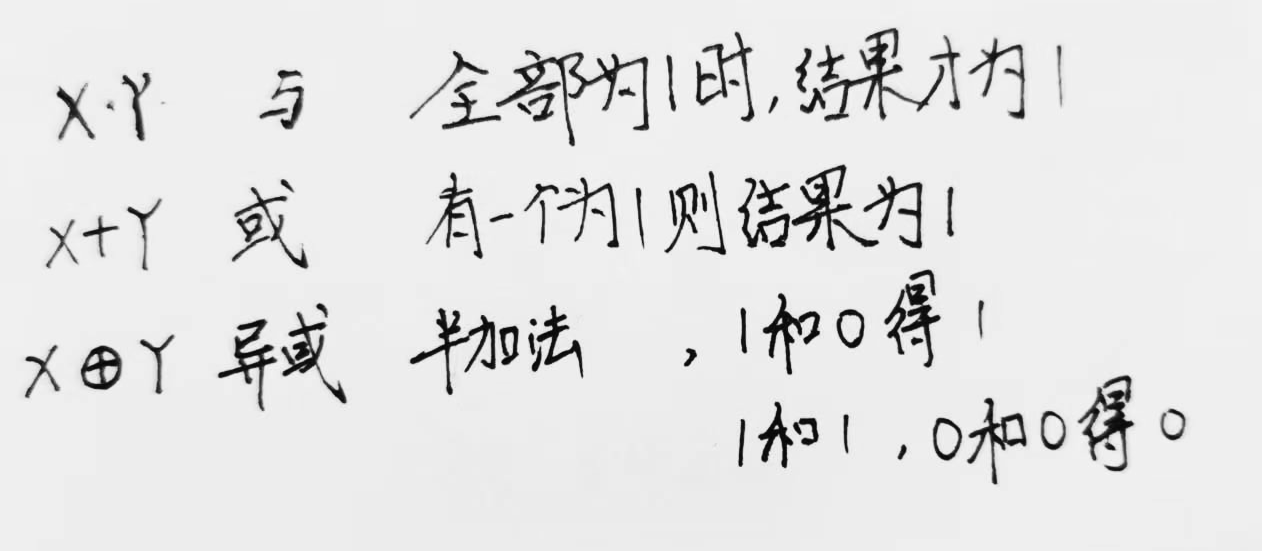 X·Y 与 全部为1时,结果才为1
X+Y 或 有一个为1则结果为1
X⊕Y 异或 半加法 ,1和0得1
1和1,0和0得0